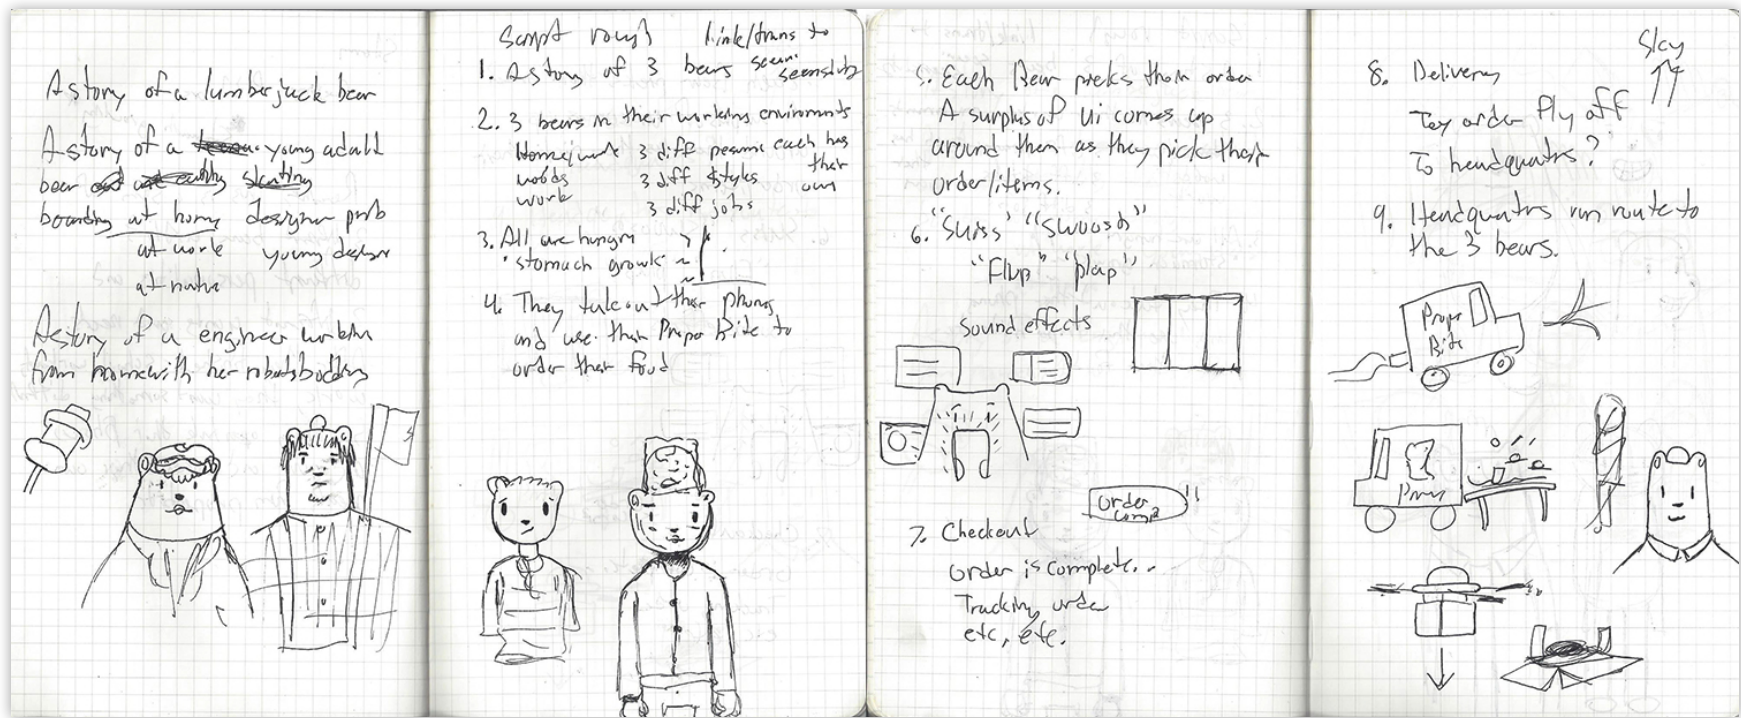 A story of a lumberjack bear
A story of a young adult
bear skating
boarding at home designer prob
at work young designer
at nature
A story of a engineer workin
from home with her robots buddys
Script rough link/trans to
1. A story of 3 bears
2. 3 bears in their working enviroments
Home/work 3 diff each has
woods 3 diff styles their
work own
3 diff jobs
3. All are hungry
"stomach growls ~
4. They take out their phones
and use their Propr Bite to
order their food
5. Each Bear picks their order
A surplus of Ui comes up
around them as they pick their
order/items.
6. "Swiss" "Swoosh"
"Flup" "plap"
Sound effects
Order
Comp
7. Checkout
order is complete..
Tracking order
etc, etc.
Sky
8. Delivery
order fly off
To headquatrs?
9. Headquatrs run route to
the 3 bears.
Propr
Bite